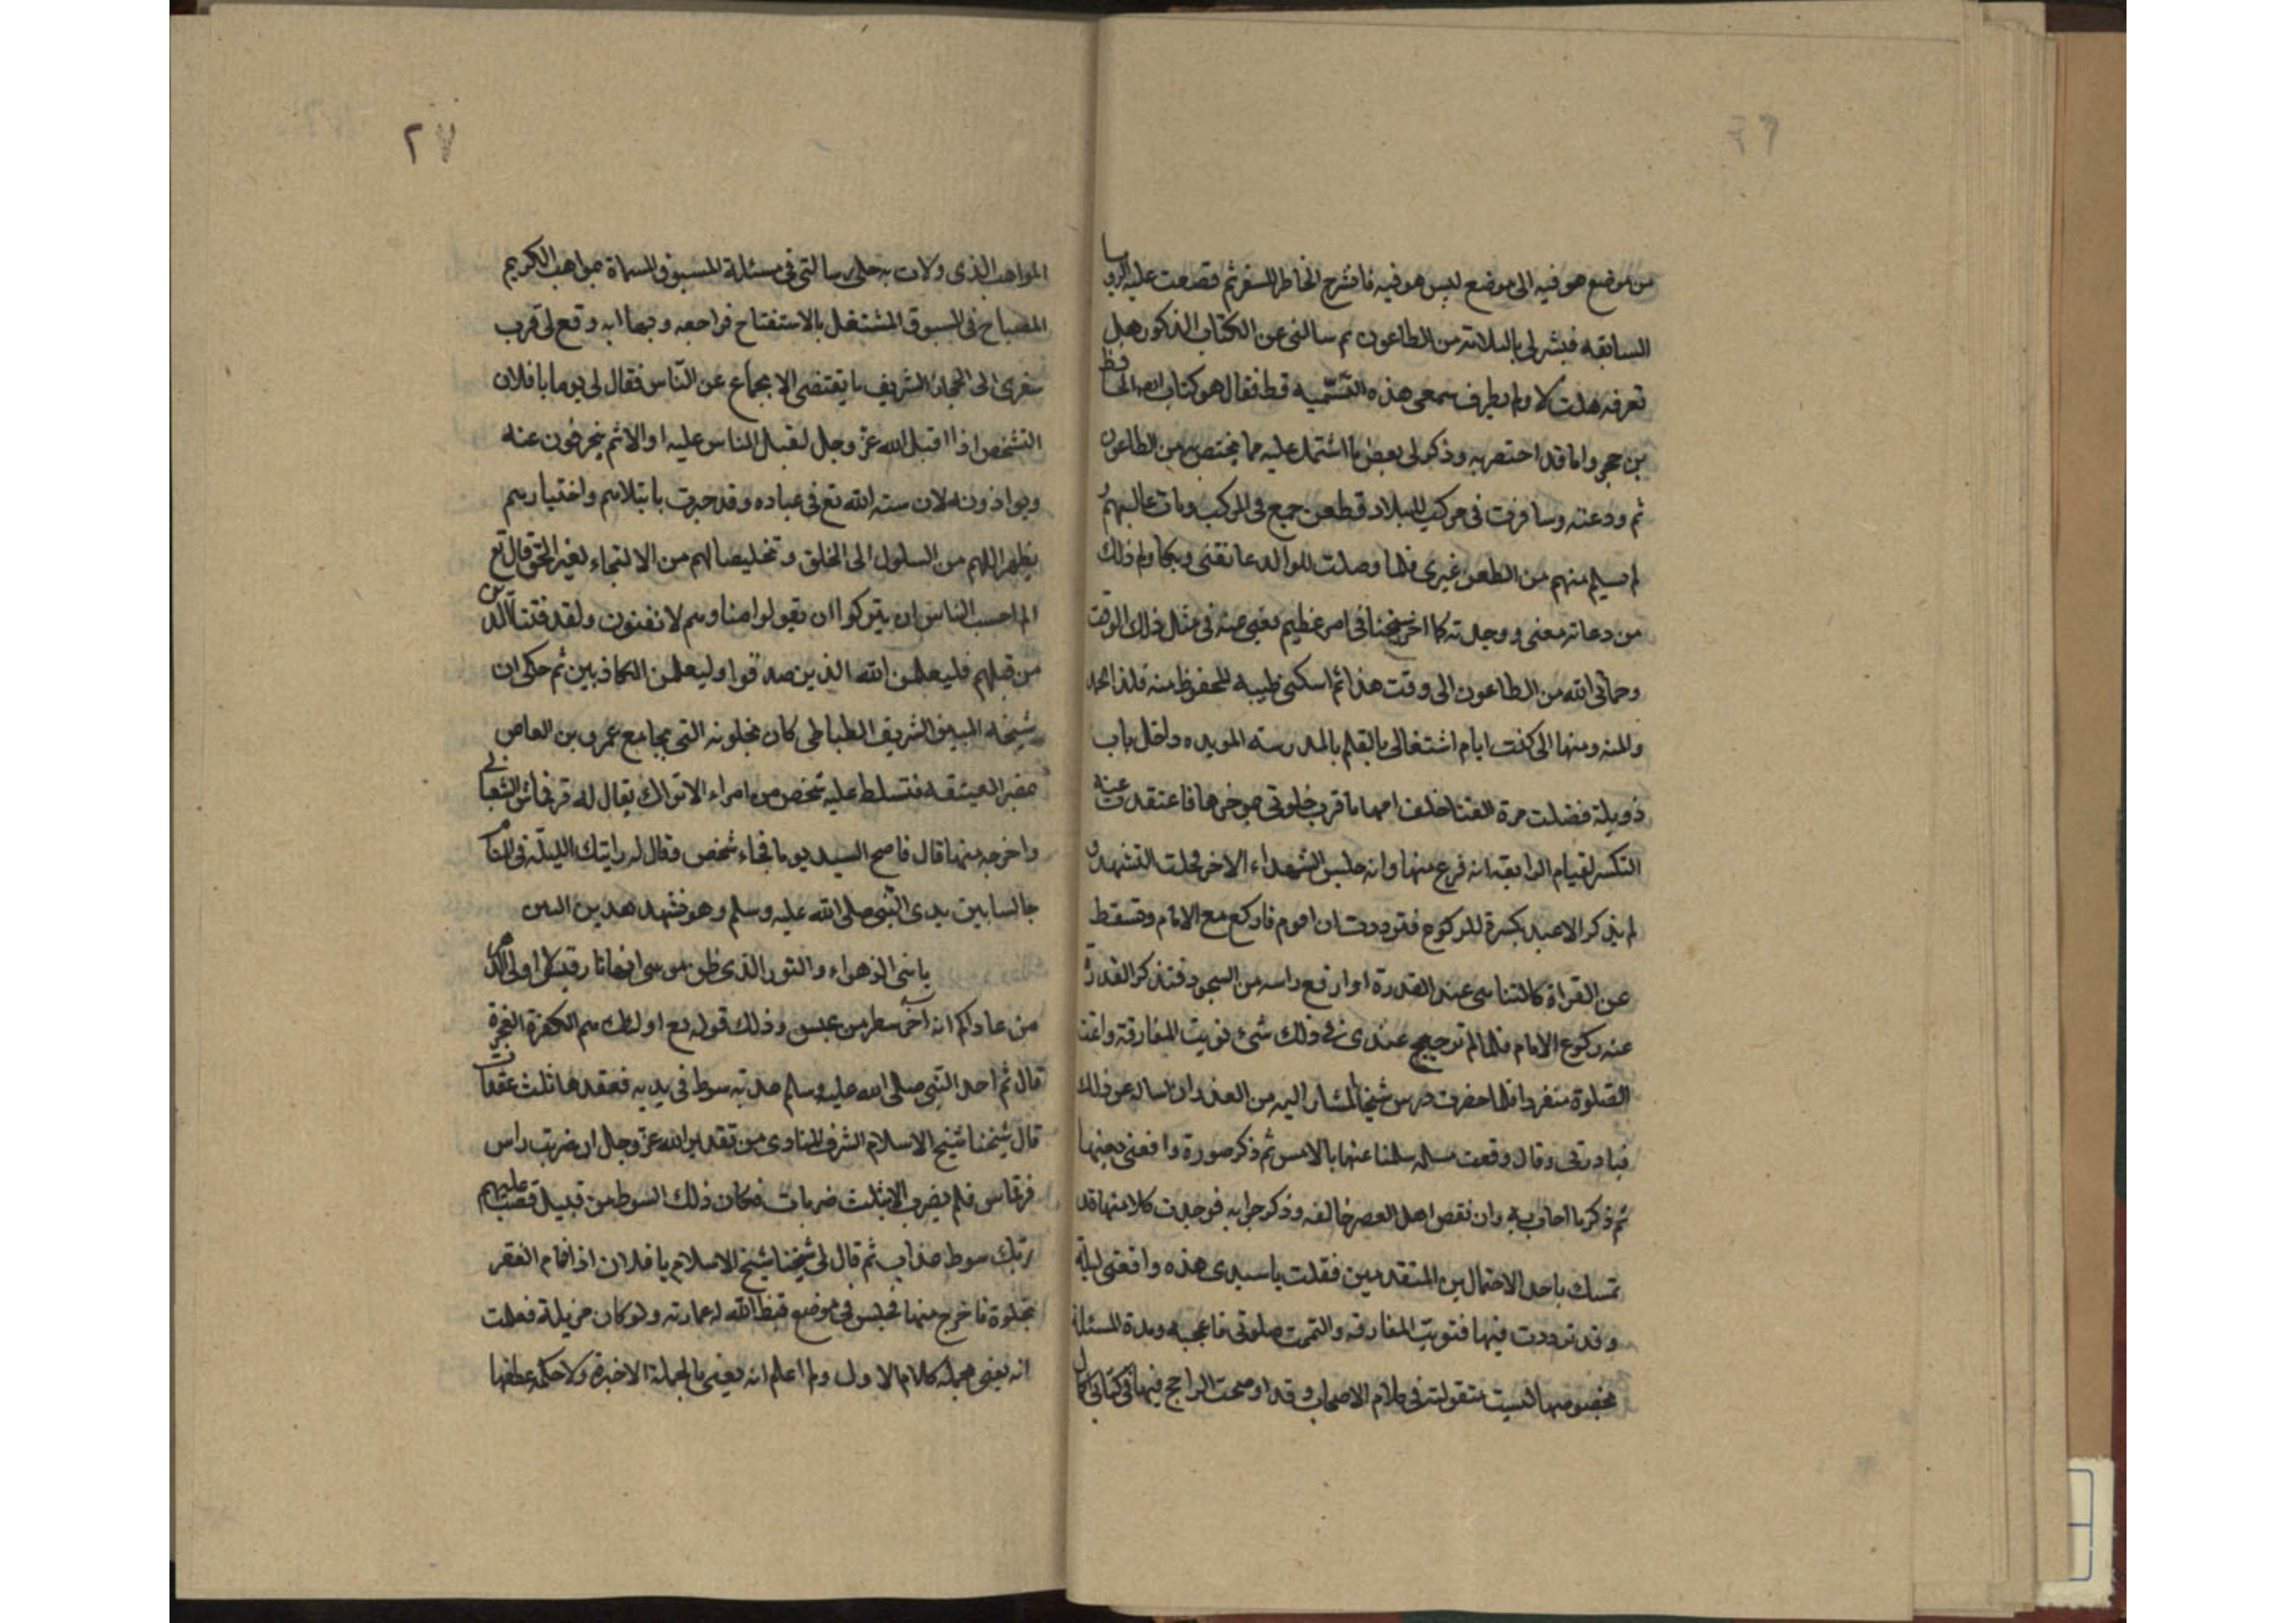 من موضع هو فيه الى موضع ليس هو فيه فانشرح الخاطر للسفر ثم قصصت عليه الرويا
السابقه فبشرلى بالسلامة من الطاعون ثم سالنى عن الكتاب المذكور هل
تعرفه فقلت لا ولم يطرف سمعى هذه التسمية قط فقال هو كتاب الحافظ
بن حجر واما قد اختصر به وذكر لى بعض ما اشتمل عليه مما يختص به من الطاعون
ثم ودعته وسافرت فى مركب للبلاد فطعن جمع فى المركب ومات غالبهم و
لم يسلم منهم من الطعن غيرى فلما وصلت للوالد عانقنى وبكا ولم ذلك
من دعاته معنى ووجدته كما اخبر شيخنا فى امر عظيم بغيبى عنه فى مثل ذلك الوقت
وحمانى الله من الطاعون الى وقت هذا ثم اسكنى طيبه المحفوظ منه فلله الحمد
والمنه ومنها انى كنت ايام اشتغالى بالعلم بالمدرسة المويده داخل باب
ذويلة فصليت مرة العشا خلف امامها قرب خلوتى بموخرها فاعتقدت عنه
التكبير لقيام الرابعة انه فرغ منها وانه جلس للتشهد الاخر فجلت التشهد و
لم يتذكر الا عند تكبيرة للركوع فترددت ان اقوم فاركع مع الامام وتسقط
عن القراة كالتناسى عند القدرة او ارفع راسه من السجود فتذكر القدرة
عنه ركوع الامام فلما لم ترجيح عندى فى ذلك شئ نويت المفارقة واتممت
الصلوة منفردا فلما حضرت درس شيخنا المشار اليه من الغد اردت اساله عن ذلك
فبادرنى وقال وقعت مساله سئلنا عنها بالامس ثم ذكر صورة واقعتى بعينها
ثم ذكر ما اجاب به وان بعض اهل العصر خالفه وذكر جوابه فوجدت كلا منها قد
تمسك باحد الاحتمالين المتقدمين فقلت يا سيدى هذه واقعتى ليلة
وقد ترددت فيها فنويت المفارقه واتممت صلوتى فاعجبه وهذه المسئلة
بخصوصها ليست منقولة فى كلام الاصحاب وقد اوضحت الراجح فيها فى كتابى كمال
٢٧
المواهب الذى ولات به على رسالتى فى مسئلة المسبوق المسماة مواهب الكريم
المصباح فى المسبوق المشتغل بالاستفتاح فراجعه ومنها انه وقع لى قرب
سفرى الى الحجاز الشريف ما يقتضى الانجماع عن الناس فقال لى يوما يا فلان
الشخص اذا اقبل الله عز وجل لقبل الناس عليه اولا ثم ينحرفون عنه
ويواذونه لان سنة الله تع فى عباده وقد جرت بابتلاهم واختيارهم
تطهيرا لهم من السلول الى الخلق وتخليصا لهم من الالتجاء لغير الحق قال تع
الم احسب الناس ان يتركوا ان يقولوا امنا وهم لا يفتنون ولقد فتنا الذين
من قبلهم فليعلمن الله الذين صدقوا وليعلمن الكاذبين ثم حكى ان
شيخه السيد الشريف الطباطى كان بخلوته التى بجامع عمرو بن العاص
بمصر العتيقه فتسلط عليه شخص من امراء الاتراك يقال له قرقماش الشعبانى
واخرجه منها قال فاصبح السيد يوما فجاء شخص وقال له رايتك الليلة فى المنام
جالسا بين يدى النبى صلى الله عليه وسلم وهو ينشد هذين البيتين
يا بنى الزهراء والنور الذى ظن موسى انها نار قبس لا اوالى الدهر
من عاداكم انه آخر سطر من عبس وذلك قوله تع اولئك هم الكفرة الفجرة
قال ثم اخذ النبى صلى الله عليه وسلم عذبة سوط فى يديه فعقدها ثلث عقدات
قال شيخنا شيخ الاسلام الشرف المناوى من تقدير الله عز وجل ان ضربت راس
قرقماس فلم يضرب الا بثلث ضربات فكان ذلك السوط من قبيل فصب عليهم
ربك سوط عذاب ثم قال لى شيخنا شيخ الاسلام يا فلان اذا اقام الفقر
بخلوة فاخرج منها فجلس فى موضع قيض الله له عمارته ولو كان مزبلة فعلمت
انه يعنى بمجمله كلام الاول ولم اعلم انه يعنى بالجملة الاخيرة ولا حكمة عطفها